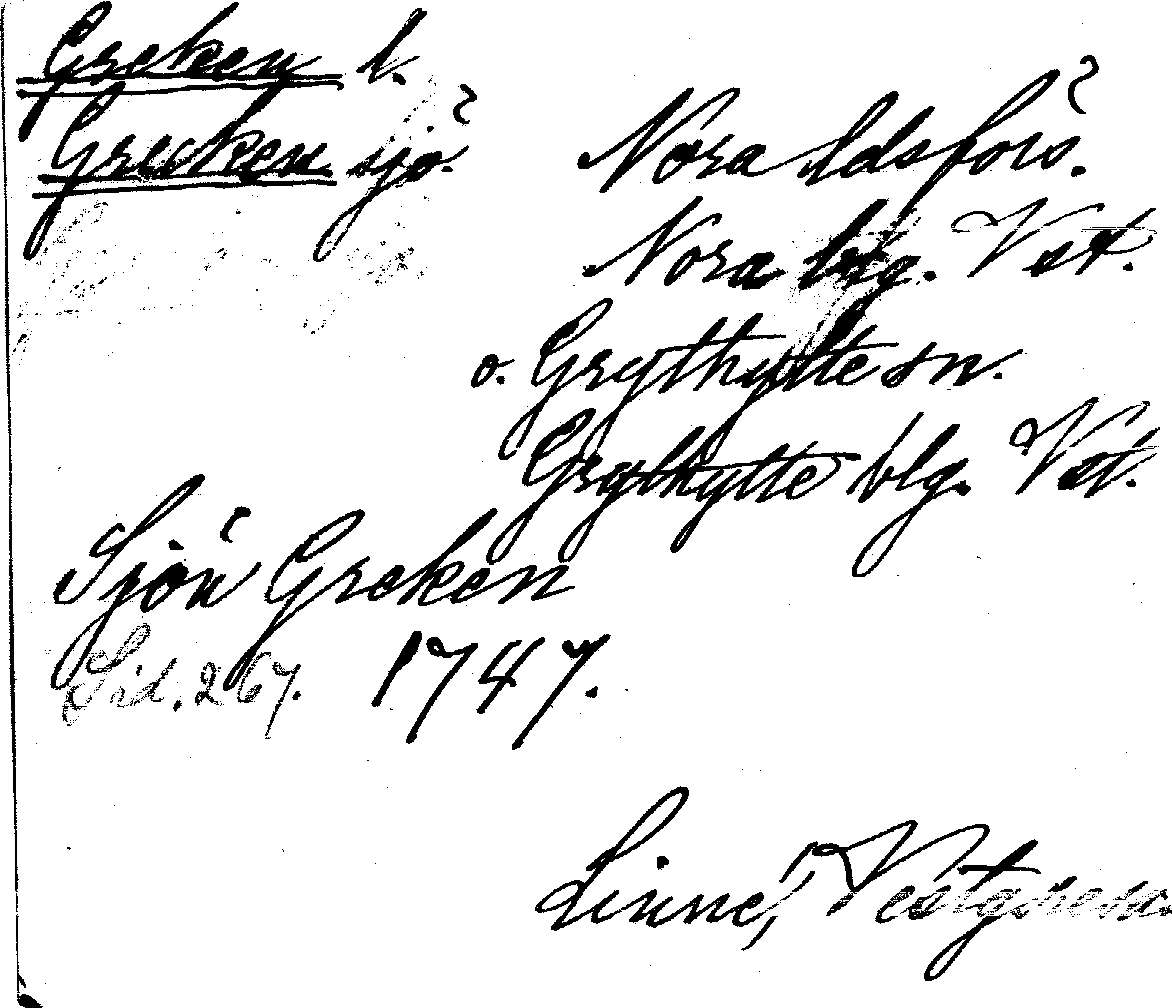 Greken l.
Grecken sjö.
Nora ldsförs.
Nora brg. Vst.
o. Grythytte sn.
Grythytte blg. Vst.
Sjön Greken
Sid. 267. 1747.
Linné, Vestgöresa.